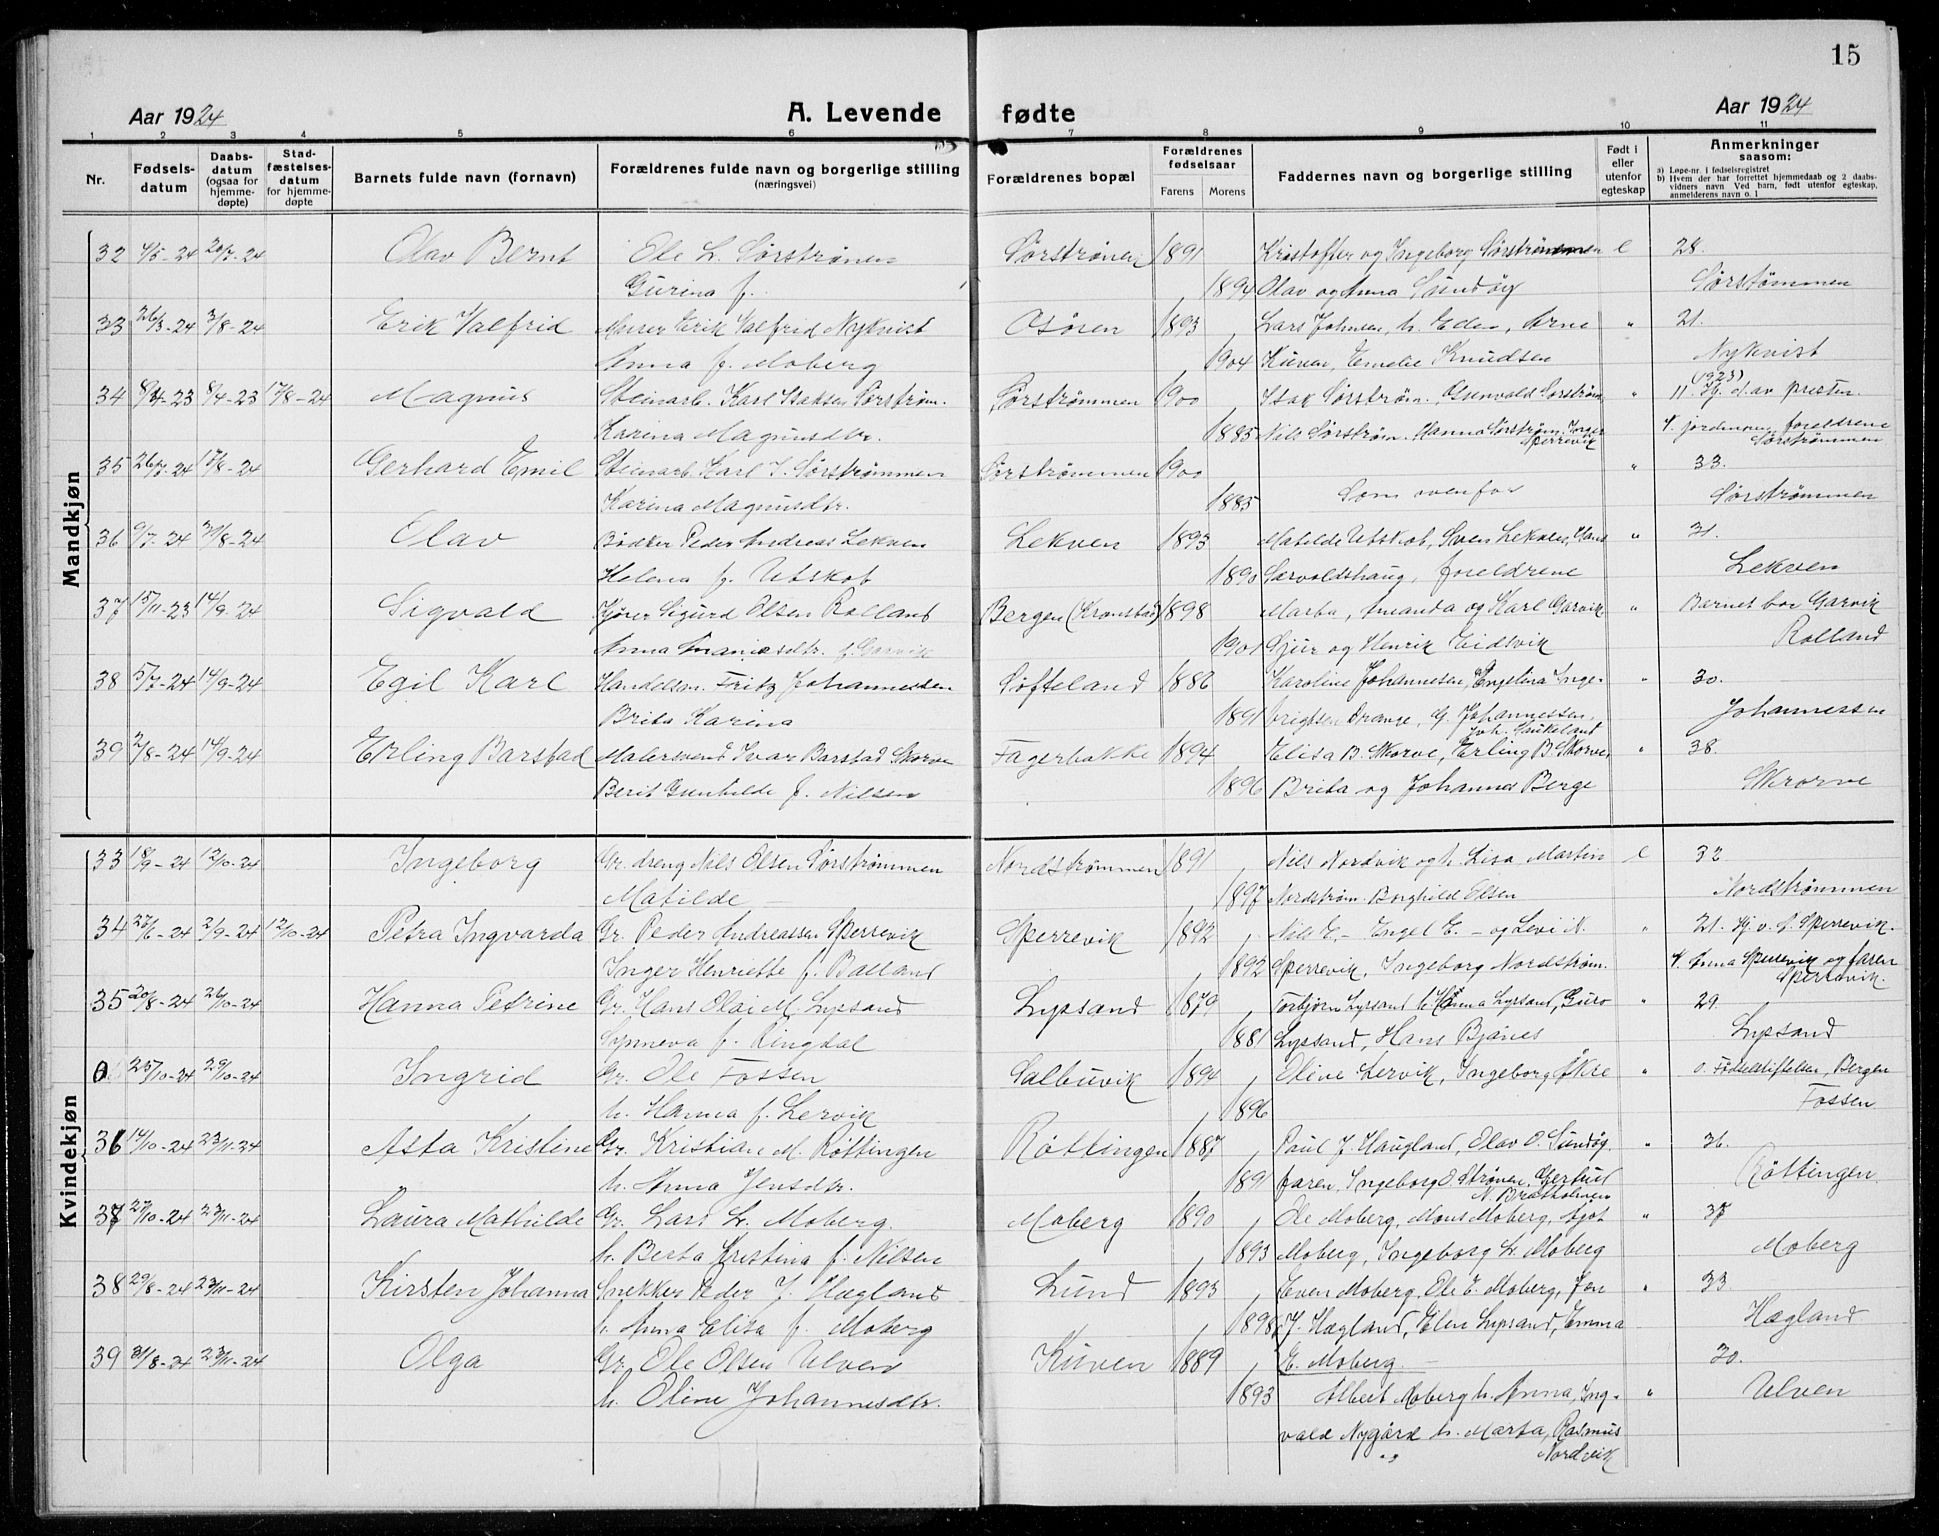 15
Aar 1924 A. Levende fødte Aar 1924
1 2 3 4 5 6 7 8 9 10 11
Nr. Fødsels-datum Daabs-datum (ogsaa for hjemme-døpte) Stad-fæstelses-datum for hjemme-døpte Barnets fulde navn (fornavn) Forældrenes fulde navn og borgerlige stilling (næringsvei) Forældrenes bopæl Forældrenes fødselsaar Farens Morens Faddernes navn og borgerlige stilling Født i eller utenfor egteskap Anmerkninger saasom: a) Løpe-nr. i fødselsregistret b) Hvem der har forrettet hjemmedaab og 2 daabs-vidners navn Ved barn, født utenfor egteskap, anmelderens navn o. l
Mandkjøn
32 4/5-24 20/7-24 Olav Bernt Ole L. Sørstrønen Sørstrønen 1891 Kristoffer og Ingeborg Sørstrømmen e 28.
Gurina f. 1894 Olav og Anna Sundøy Sørstømmen
33 26/3-24 3/8-24 Erik Valfrid Murer Erik Valfrid Nykvist Osøren 1893 Lars Johnsen, h. Eden, Arne " 21.
Anna f. Moberg 1904 Kuven, Emelie Knudsen Nykvist
34 8/4-23 8/4-23 17/8-24 Magnus Steinarb. Karl Isaksen Sørstrøm. Sørstrømmen 1900 Isak Sørstrøm, Gunvald Sørstrøm " 11. (1923) Hj. d. av presten.
Karina Magnusdtr. 1885 Nils Sørstrøm. Hanna Sørstrøm, Inger Sperrevik V. jordmoren, foreldrene Sørstrømmen
35 26/7-24 17/8-24 Gerhard Emil Steinarb. Karl I. Sørstrømmen Sørstrømmen 1900 " 33.
Karina Magnusdtr. 1885 Som ovenfor Sørstrømmen
36 9/7-24 30/8-24 Olav Bødker Peder Andreas Lekven Lekven 1893 Matilde Utskot, Sven Lekven, Hans " 31.
Helena f. Utskot 1890 Særvoldshaug, foreldrene Lekven
37 15/11-23 14/9-24 Sigvald Kjører Sigurd Olsen Rolland Bergen (Kronstad) 1898 Marta, Amanda og Karl Garvik " Barnet bor Garvik
Anna Ananiasdtr. f. Garvik 1901 Sjur og Henrik Eidsvik Rolland
38 5/7-24 14/9-24 Egil Karl Handelsm. Fritz Johannessen Søfteland 1886 Karoline Johannesen, Engelina Inge- " 30.
Brita Karina 1891 brigtsen Drange, G. Johannessen, Joh. Giskeland Johannessen
39 2/8-24 14/9-24 Erling Barstad Malersvend Ivar Barstad Skorve Fagerbakke 1894 Elisa B. Skorve, Erling B. Skorve, " 38.
Berit Gunhilde f. Nilsen 1896 Brita og Johannes Berge Skrorve
Kvindekjøn
33 18/9-24 12/10-24 Ingeborg Gr. dreng Nils Olsen Sørstrømmen Nordstrømmen 1891 Nils Nordvik og h. Lisa Martin e 32
Matilde — 1897 Nordstrøm. Borghild Olsen Nordstrømmen
34 27/6-24 2/9-24 12/10-24 Petra Ingvarda Gr. Peder Andreassen Sperrevik Sperrevik 1892 Nils E. – Engel E. – og Levi N. " 21. Hj. v. S. Sperrevik.
Inger Henriette f. Balland 1892 Sperrevik, Ingeborg Nordstrøm. V. Anna Sperrevik og faren Sperrevik.
35 20/8-24 26/10-24 Hanna Petrine Gr. Hans Olai M. Lypsand Lypsand 1879 Torbjørn Lypsand h. Hanna Lypsand, Guro " 29.
Synneva f. Ringdal 1881 Lypsand, Hans Bjånes Lypsand
0 25/10-24 29/10-24 Ingrid Gr. Ole Fossen Salbuvik 1894 Olive Lervik, Ingeborg Økre " o. Fødselstiftelsen, Bergen
h. Hanna f. Lervik 1896 Fossen
36 14/10-24 23/11-24 Asta Kristine Gr. Kristian M. Røttingen Røttingen 1887 Paul J. Haugland, Olav O. Sundøy, " 36.
h. Anna Jensdtr. 1891 faren, Ingeborg O. Strønen, Gertrud N. Bratholmen Røttingen
37 27/10-24 23/11-24 Laura Mathilde Gr. Lars L. Moberg Moberg 1890 Ole Moberg, Mons Moberg, Agot " 37
h. Berta Kristina f. Nilsen 1893 Moberg, Ingeborg L. Moberg Moberg
38 29/8-24 23/11-24 Kirsten Johanna Snekker Peder J. Hægland Lund 1893 Even Moberg, Ole E. Moberg, Jon " 33
h. Anna Elisa f. Moberg 1898 J. Hægland, Elen Lypsand, Emma Hægland
39 31/8-24 23/11-24 Olga Gr. Ole Olsen Ulven Kuven 1889 E. Moberg. 30.
h. Oline Johannesdtr. 1893 Albert Moberg h. Anna, Ing- " Ulven
vald Nygård h. Marta, Rasmus
Nordvik